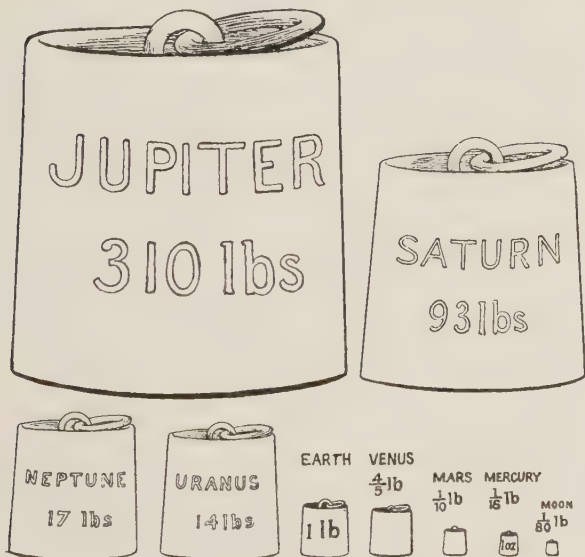 JUPITER
310 lbs
SATURN
93 lbs
NEPTUNE
17 lbs
URANUS
14 lbs
EARTH
1 lb
VENUS
4/5 lb
MARS
1/10 lb
MERCURY
1/16 lb
1 oz
MOON
1/80 lb